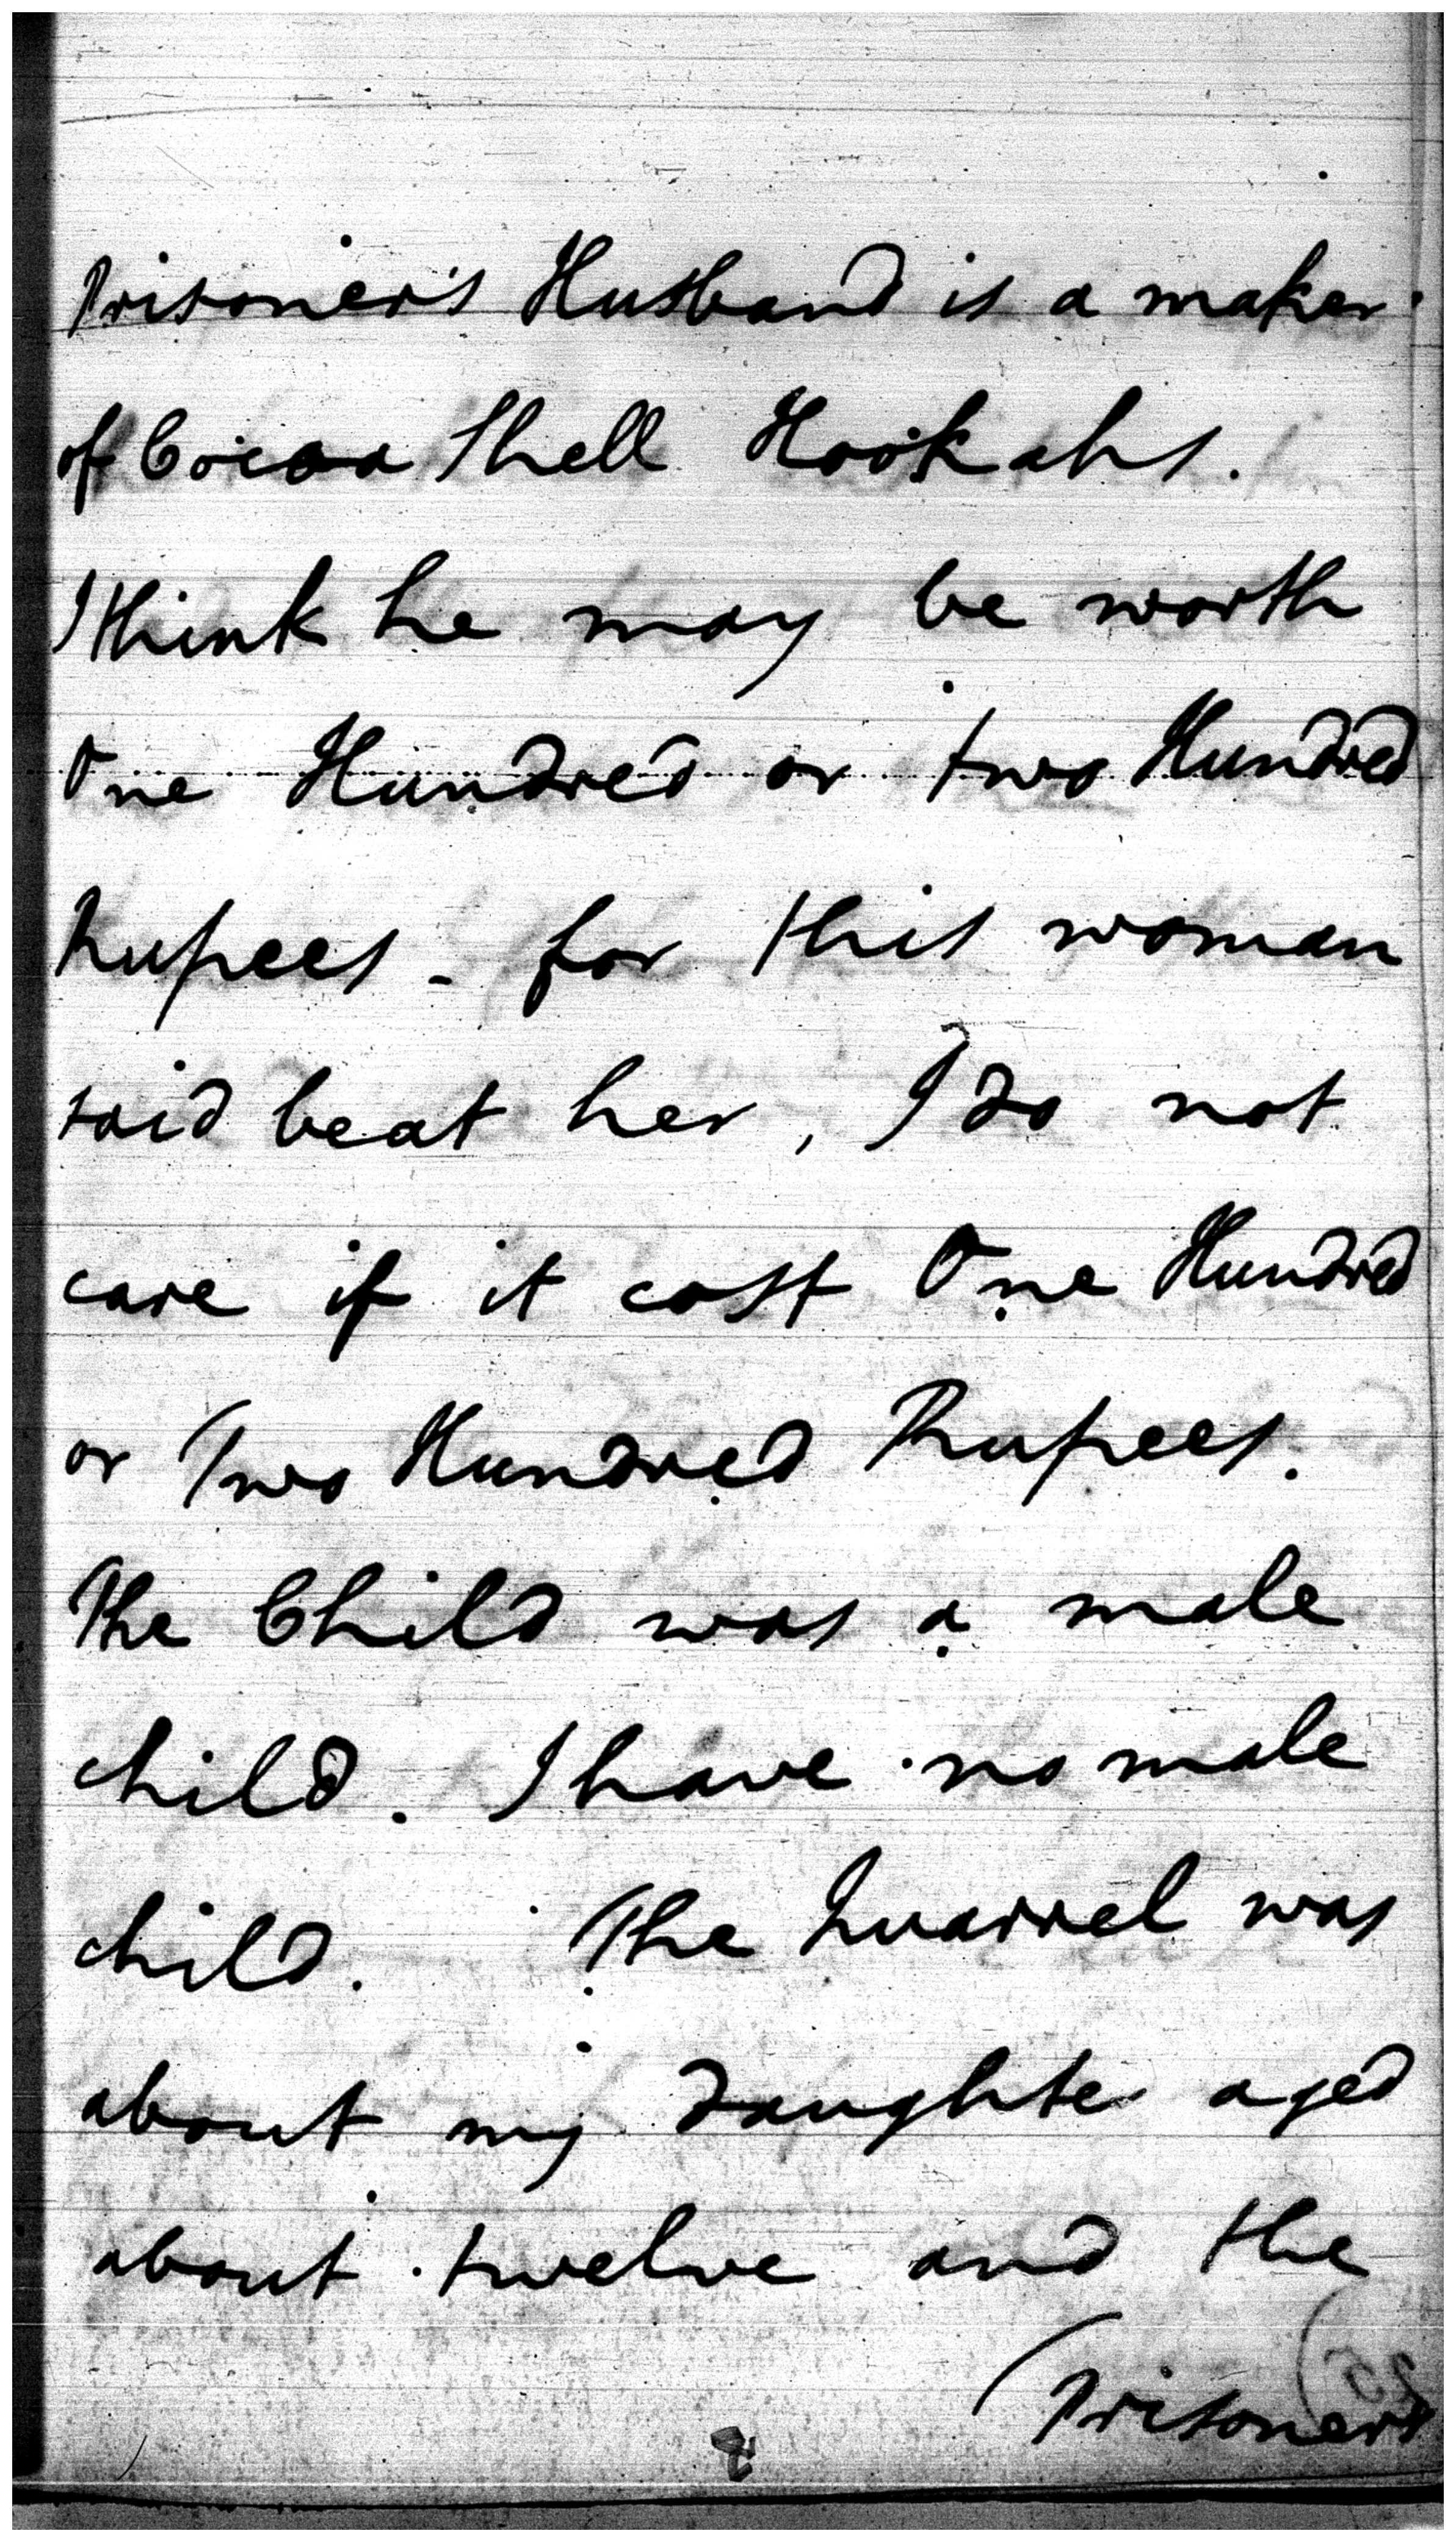 Prisoner's Husband is a maker
of Cocoa Shell Hookahs.
I think he may be worth
One Hundred or two Hundred
Rupees - for this woman
said beat her, I do not
care if it cost One Hundred
or Two Hundred Rupees.
The Child was a male
child. I have no male
child. The Quarrel was
about my daughter aged
about twelve and the
(Prisoners